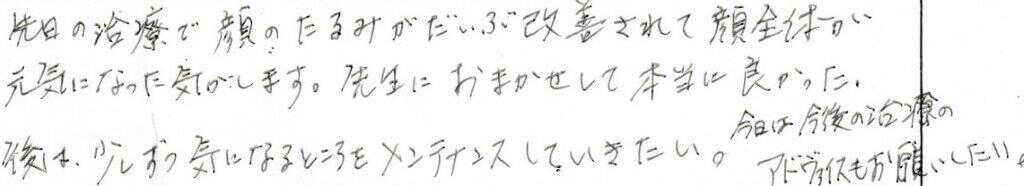 先日の治療で顔のたるみがだいぶ改善されて顔全体が
元気になった気がします。先生におまかせして本当に良かった。
後は、少しずつ気になるところをメンテナンスしていきたい。
今日は今後の治療の
アドヴァイスもお願いしたい。